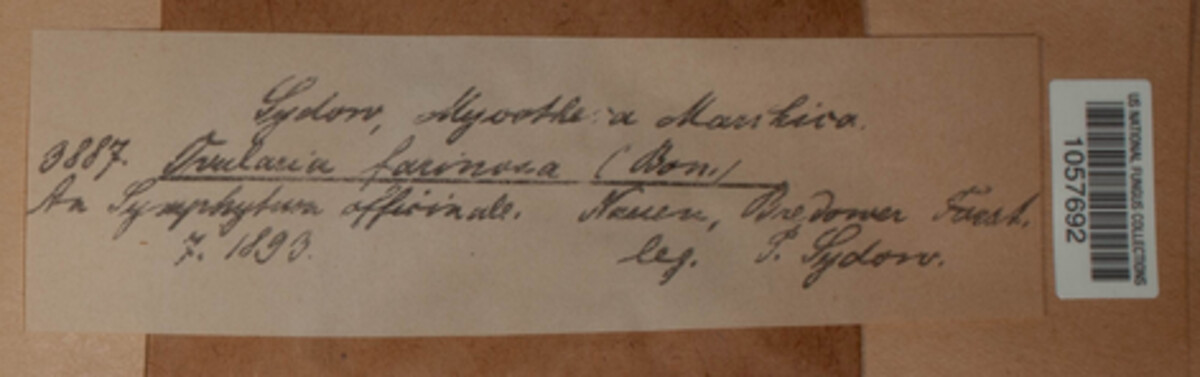 Sydow, Mycothe:a Marchica.
3887. Ovularia farinosa (Bon.)
An Symphytum officinale. Nauen, Bredower Forst.
7. 1893. leg. P. Sydow.
US NATIONAL FUNGUS COLLECTIONS
1057692